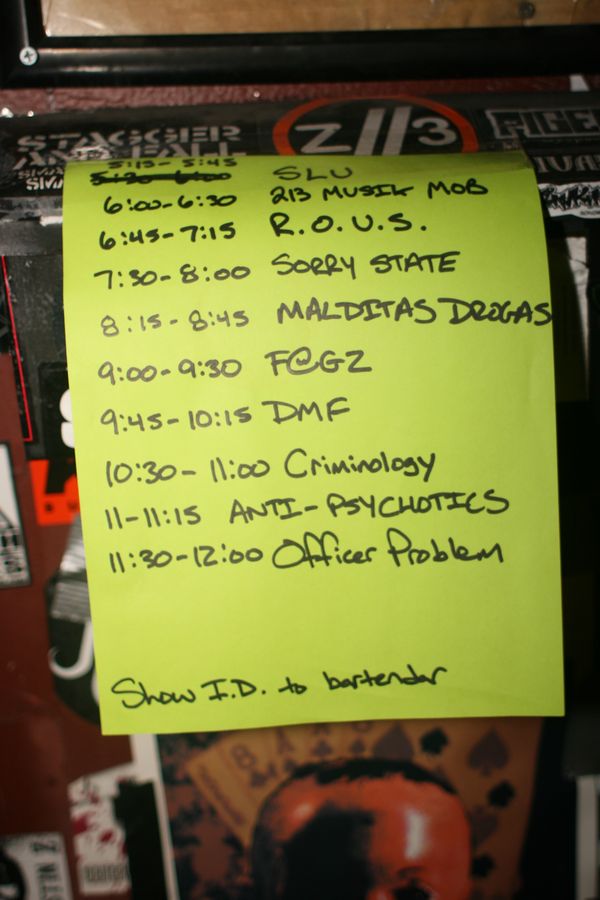 STAGGER
AND FALL
Z//3
5:15-5:45 SLU
5:30-6:00
6:00-6:30 213 MUSIK MOB
6:45-7:15 R.O.U.S.
7:30-8:00 SORRY STATE
8:15-8:45 MALDITAS DROGAS
9:00-9:30 F@GZ
9:45-10:15 DMF
10:30-11:00 Criminology
11-11:15 ANTI-PSYCHOTICS
11:30-12:00 Officer Problem
Show I.D. to bartendar